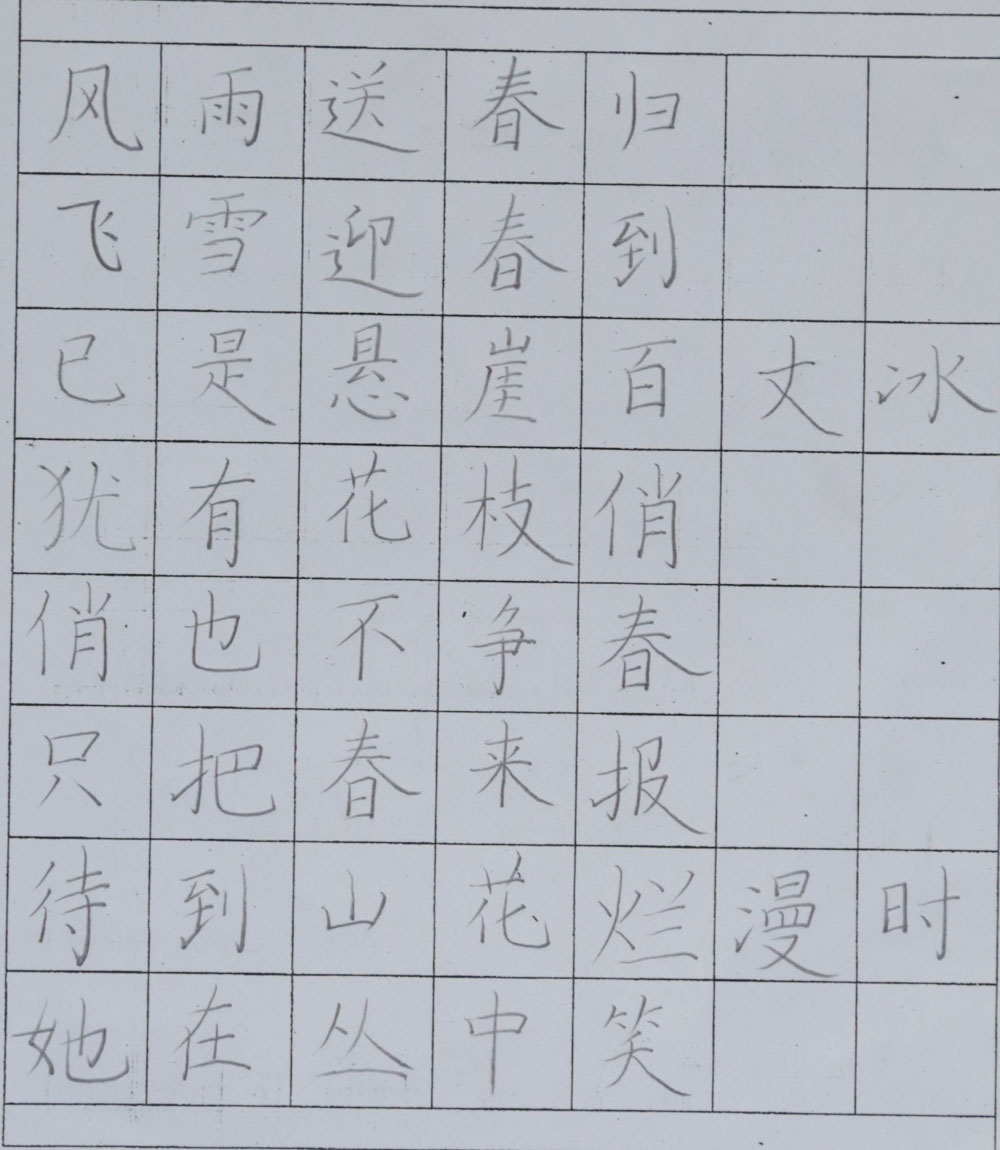 风雨送春归
飞雪迎春到
已是悬崖百丈冰
犹有花枝俏
俏也不争春
只把春来报
待到山花烂漫时
她在丛中笑